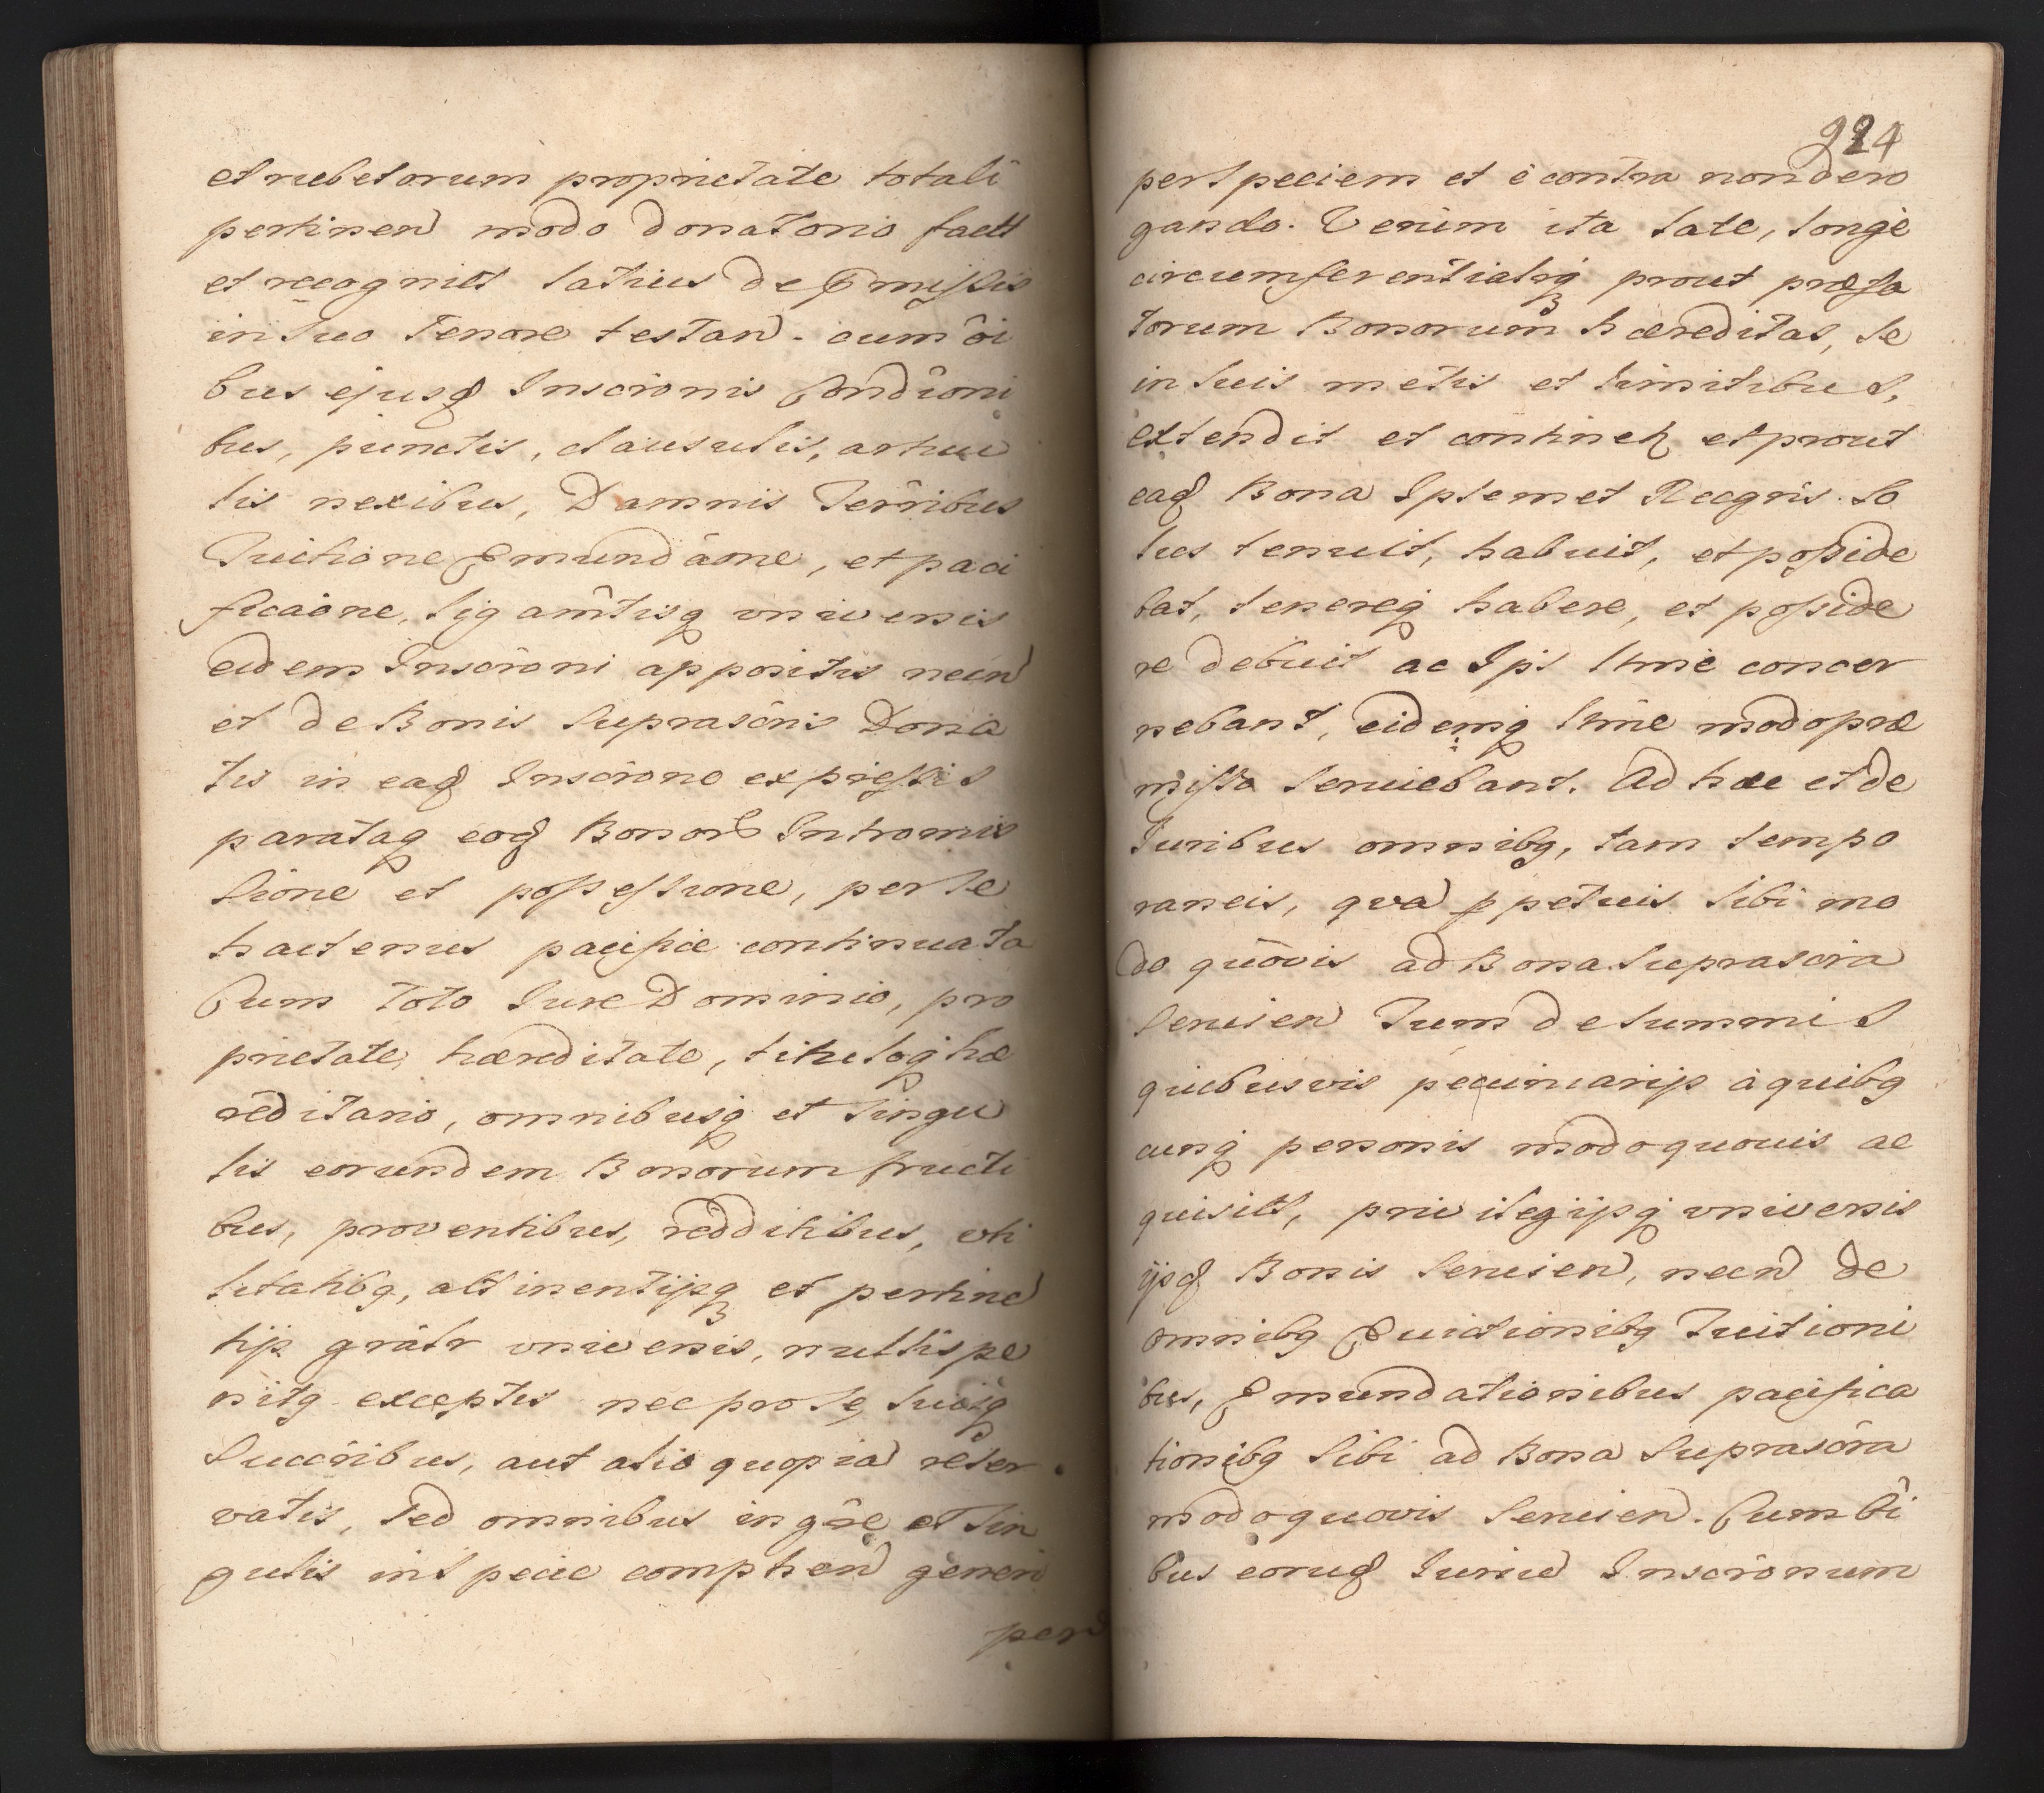 et rubetorum proprietate totali
pertinen modo donatorio fact
et recognit latius de pmissis
in suo Tenore testan. cum oi
bus ejusd Inscrionis Condîoni
bus, punctis, clausulis, articu
lis nexibus, Damnis Terribus
Tuitione Emundâone, et paci
ficaône, ligamtisq universis
eidem Inscrîoni appositis necn
et de Bonis suprascris Dona
tis in ead Inscrione expressis
parataq eod Bonor Intromis
sîone et possessione, per se
hactenus pacifice continuata
Cum toto Iure Dominio, pro
prietate, hæreditate, tituloq hæ
reditario, omnibusq et singu
lis eorundem Bonorum fructi
bus, proventibus, redditibus, uti
litatibq, attinentijsq et pertine
tijs grâlr universis, nullis pe
nitq exceptis nec pro se, suisq
Succribus, aut alio quopia reser
vatis, sed omnibus in gñe et sin
gulis in specie comphen generi
per
924
per speciem et è contra non dero
gando. Verùm ita late, longè
circumferentialrq prout præfa
torum Bonorum hæreditas, se
in suis metis et limitibus,
extendit et continet, et prout
ead Bona Ipsemet Recgñs. so
lus tenuit, habuit, et posside
bat, tenereq habere, et posside
re debuit ac Ips Ihmè concer
nebant, eidemq Ihmè modo præ
misso seruiebant. Ad hæc et de
Iuribus omnibq, tam tempo
raneis, qva ppetuis sibi mo
do quôvis ad Bona suprascra
seruien Tum de summis
quibusvis pecuniarijs à quibq
cunq personis modoquouis ac
quisits, privilegijsq universis
ijsd Bonis seruien, necn de
omnibq Euictionibq Tuitioni
bus, Emundationibus pacifica
tionibq sibi ad Bona Suprascra
modoquovis seruien. Cum ôi
bus eorud Iuriu Inscrônum